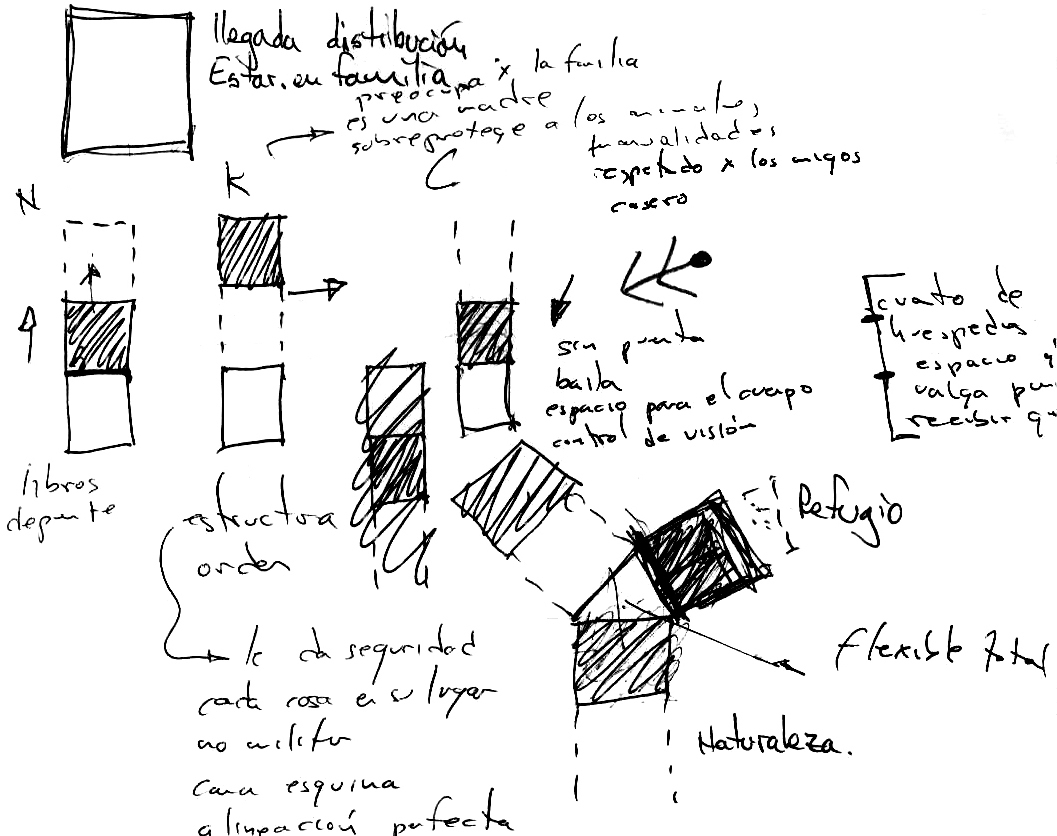 llegada distribución
Estar. en familia
preocupa x la familia
es una madre
sobreprotege a los animales,
manualidades
respetado x los amigos
casero
N
K
C
sin puerta
baila
espacio para el cuerpo
control de visión
cuarto de
huespedes
espacio
valga
recibir
libros
deporte
estructura
orden
Refugio
flexible total
Naturaleza.
le da seguridad
cada cosa en su lugar
no militar
cama esquina
alineación perfecta